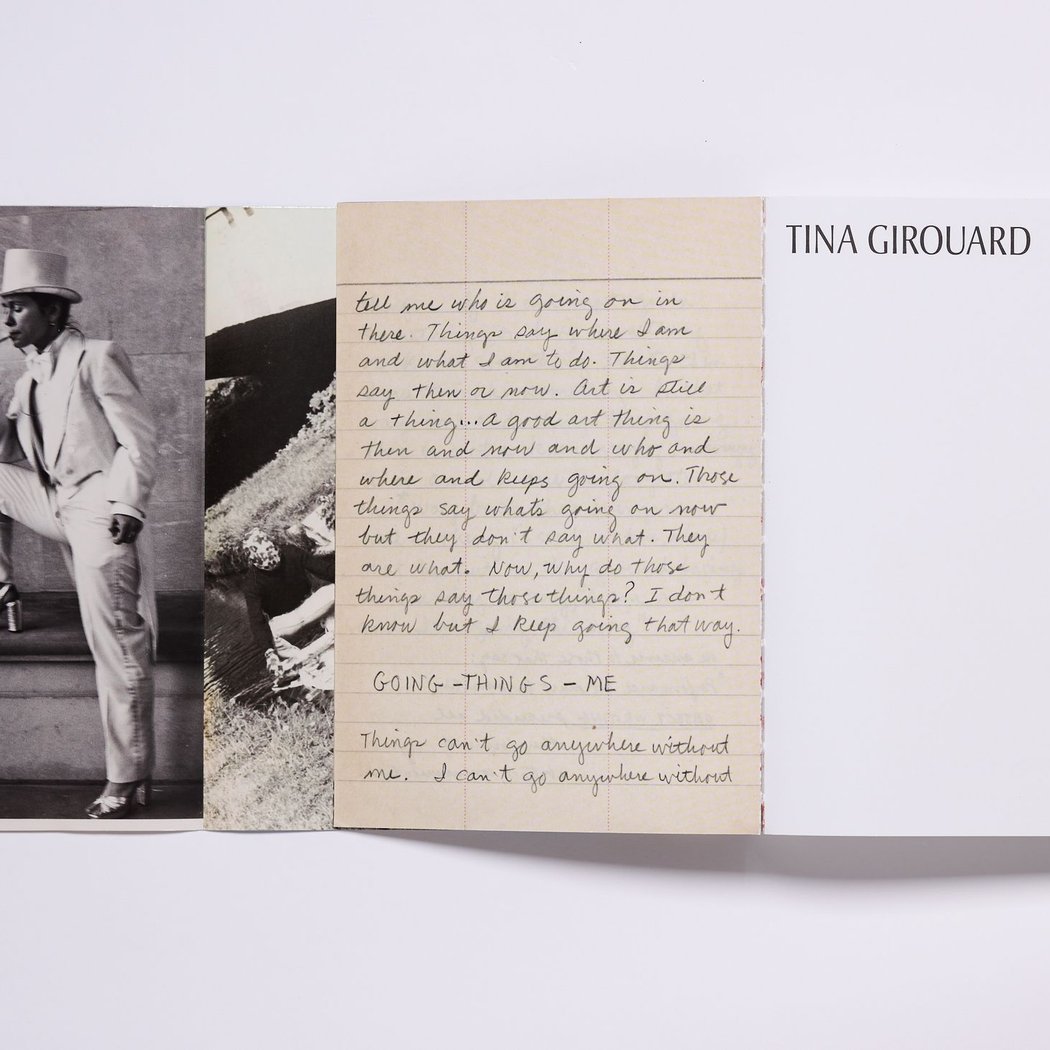 tell me who is going on in
there. Things say where I am
and what I am to do. Things
say then or now. Art is still
a thing... a good art thing is
then and now and who and
where and keeps going on. Those
things say what's going on now
but they don't say what. They
are what. Now, why do those
things say those things? I don't
know but I keep going that way.
GOING-THINGS-ME
Things can't go anywhere without
me. I can't go anywhere without
TINA GIROUARD